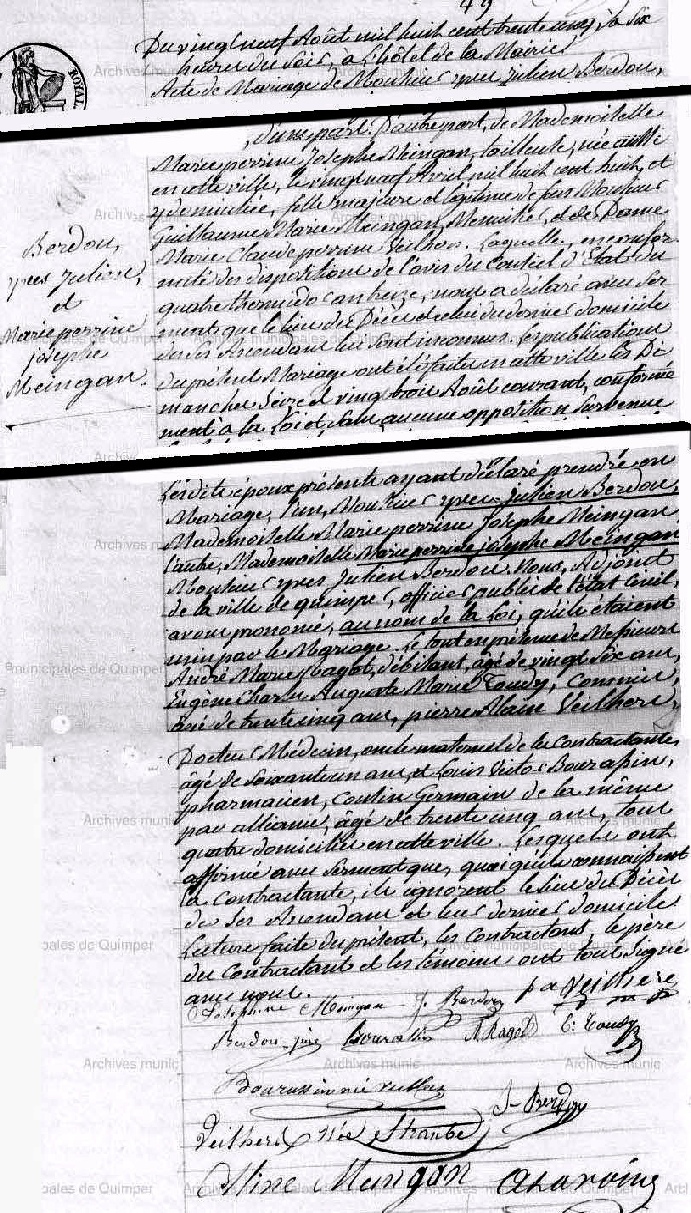 49
Du vingt neuf Août mil huit cent trente cinq, à Six
heures du Soir, à l'hôtel de la Mairie
Acte de Mariage de Monsieur yves Julien Berdou,
ROYAL
d'une part. D'autre part, de Mademoiselle
Marie perrine Josephe Meingan, tailleuse, née aussi
en cette ville, le vingt neuf Avril mil huit cent huit, et
y domiciliée, fille majeure et légitime de feu Monsieur
Guillaume Marie Meingan, Menuisier, et de Dame
Marie Claude perrine Veilhers. Laquelle, en confor
mité des dispositions de l'avis du Conseil d'État du
quatre thermidor an treize, nous a déclaré avec Ser
ment que le lieu des Décès et celui des derniers domicile
de ses Ascendans lui sont inconnus. Les publications
du présent Mariage ont été faites en cette ville les Di
manches Seize et vingt trois Août courant, conformé
ment à la Loi et sans aucune opposition Survenue
Berdou,
yves Julien,
et
Marie perrine
josephe
Meingan.
Lesdits époux présents ayant déclaré prendre en
Mariage, l'un, Monsieur yves Julien Berdou,
Mademoiselle Marie perrine Josephe Meingan
l'autre, Mademoiselle Marie perrine josephe Meingan
Monsieur yves Julien Berdou. Nous, Adjoint
de la ville de quimper, officier public de l'état Civil,
avons prononcé, au nom de la Loi, qu'ils étaient
unis par le Mariage. Le tout en présence de Messieurs
André Marie Ragot, débitant, âgé de vingt Six ans,
Eugène Charles Auguste Marie Toudy, Commis,
âgé de trente cinq ans, pierre Alain Veilhers,
Docteur Médecin, oncle maternel de la contractante,
âgé de Soixante un ans, et Louis Victor Bourassin,
pharmacien, Cousin Germain de la même
par alliance, âgé de trente cinq ans, tous
quatre domiciliés en cette ville. Lesquels ont
affirmé avec Serment que, quoiqu'ils connaissent
la Contractante, ils ignorent le lieu du Décès
de ses Ascendans et leurs derniers domicile
Lecture faite du présent, les Contractans, le père
du Contractant et les témoins ont tous Signé
avec nous.
Josephine Meingan J. Berdou p a Veilhers
Berdou Bourassin A Ragot E. Toudy
Bourassin née veilhers
J. Berdou
Veilhers née
Aline Mengan
Archives municipales de Quimper